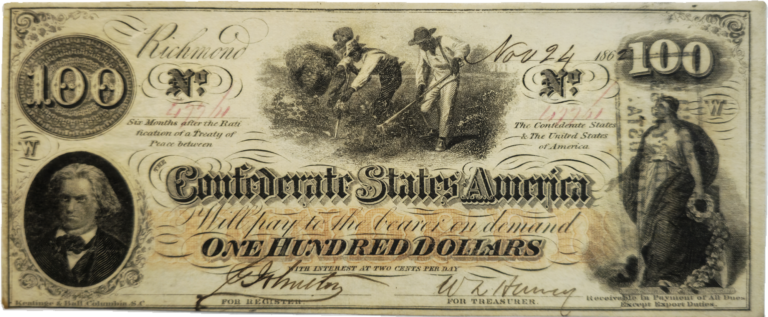 Richmond
Nov 24 1862
100
No
No
100
Six Months after the Rati
fication of a Treaty of
Peace between
The Confederate States
& The United States
of America
Confederate States America
Will pay to the bearer on demand
ONE HUNDRED DOLLARS
WITH INTEREST AT TWO CENTS PER DAY
FOR REGISTER
FOR TREASURER
Keatinge & Ball Columbia S.C.
Receivable in Payment of All Dues
Except Export Duties.